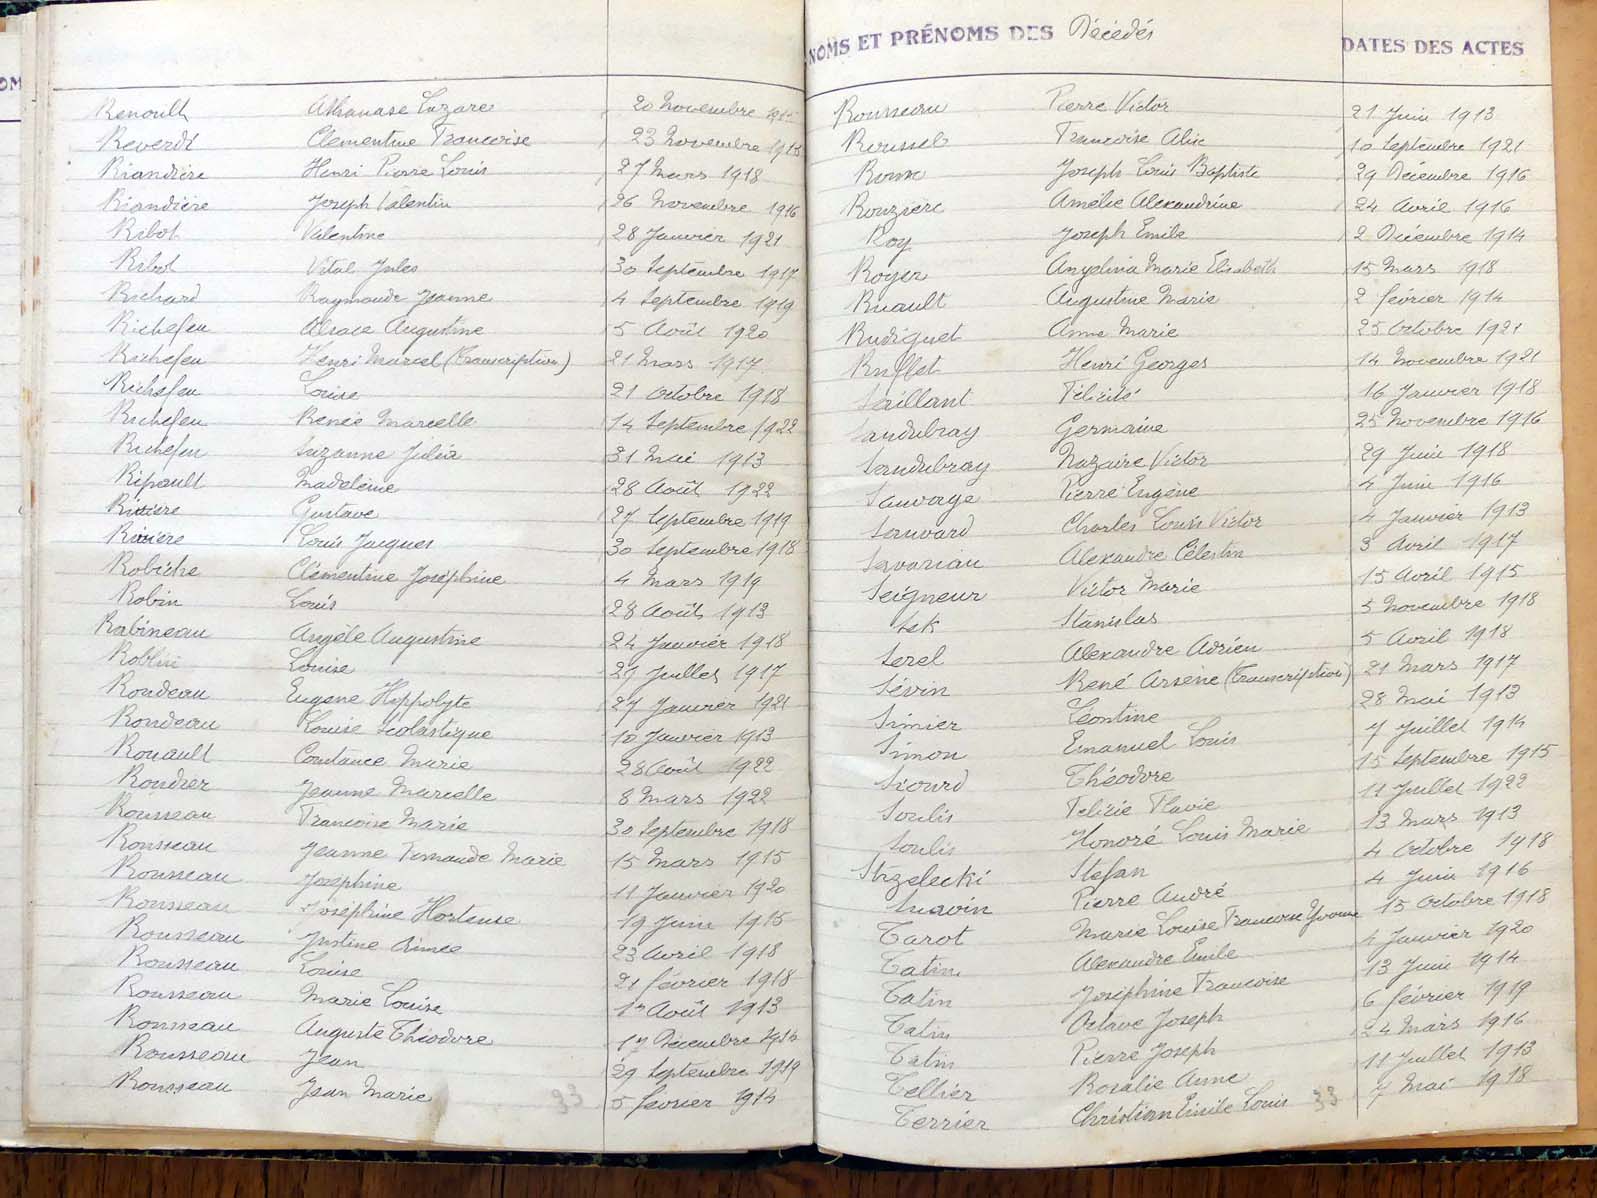 Renoult Athanase Lazare 20 Novembre
Reverdi Clementine Francoise 23 Novembre 1918
Riandière Henri Pierre Louis 27 Mars 1918
Riandière Joseph Valentin 26 Novembre 1916
Ribot Valentine 28 Janvier 1921
Ribot Vital Jules 30 Septembre 1917
Richard Raymonde Jeanne 4 Septembre 1919
Richefeu Alsace Augustine 5 Août 1920
Richefeu Henri Marcel (Transcription) 21 Mars 1917
Richefeu Louise 21 Octobre 1918
Richefeu Renée Marcelle 14 Septembre 1922
Richefeu Suzanne Julia 31 Mai 1913
Ripault Madeleine 28 Août 1922
Rivière Gustave 27 Septembre 1919
Rivière Louis Jacques 30 Septembre 1918
Robiche Clémentine Joséphine 4 Mars 1919
Robin Louis 28 Août 1913
Robineau Angèle Augustine 24 Janvier 1918
Roblin Louise 29 Juillet 1917
Rondeau Eugene Hyppolyte 27 Janvier 1921
Rondeau Louise Scolastique 10 Janvier 1913
Rouault Constance Marie 28 Août 1922
Jeanne Marcelle 8 Mars 1922
Rousseau Francoise Marie 30 Septembre 1918
Rousseau Jeanne Fernande Marie 15 Mars 1915
Rousseau Joséphine 11 Janvier 1920
Rousseau Joséphine Hortense 19 Juin 1915
Rousseau Justine Aimée 23 Avril 1918
Rousseau Louise 21 février 1918
Rousseau Marie Louise 1er Août 1913
Rousseau Auguste Théodore 17 Décembre 1914
Rousseau Jean 29 Septembre 1919
Rousseau Jean Marie 5 février 1914
33
NOMS ET PRÉNOMS DES Décédés DATES DES ACTES
Rousseau Pierre Victor 21 Juin 1913
Roussel Francoise Aline 10 Septembre 1921
Roux Joseph Louis Baptiste 29 Décembre 1916
Rouzière Amélie Alexandrine 24 Avril 1916
Roy Joseph Emile 2 Décembre 1914
Royer Angelina Marie Elisabeth 15 Mars 1918
Ruault Augustine Marie 2 février 1914
Rudiguet Anne Marie 25 Octobre 1921
Ruflet Henri Georges 14 Novembre 1921
Saillant Félicité 16 Janvier 1918
Sandubray Germaine 25 Novembre 1916
Sandubray Nazaire Victor 29 Juin 1918
Sauvage Pierre Eugène 4 Juin 1916
Sauvard Charles Louis Victor 4 Janvier 1913
Savarian Alexandre Célestin 3 Avril 1917
Seigneur Victor Marie 15 Avril 1915
Sek Stanislas 5 Novembre 1918
Serel Alexandre Adrien 5 Avril 1918
Sévin René Arsène (Transcription) 21 Mars 1917
Simier Léontine 28 Mai 1913
Simon Emanuel Louis 7 Juillet 1914
Sicard Théodore 15 Septembre 1915
Soulis Félicie Flavie 11 Juillet 1922
Soulis Honoré Louis Marie 13 Mars 1913
Strzelecki Stefan 4 Octobre 1918
Suavin Pierre André 4 Juin 1916
Tarot Marie Louise Francoise Yvonne 15 Octobre 1918
Tatin Alexandre Emile 4 Janvier 1920
Tatin Joséphine Francoise 13 Juin 1914
Tatin Octave Joseph 6 février 1919
Tatin Pierre Joseph 24 Mars 1916
Tellier Rosalie Anne 11 Juillet 1913
Terrier Christian Emile Louis 7 Mai 1918
33